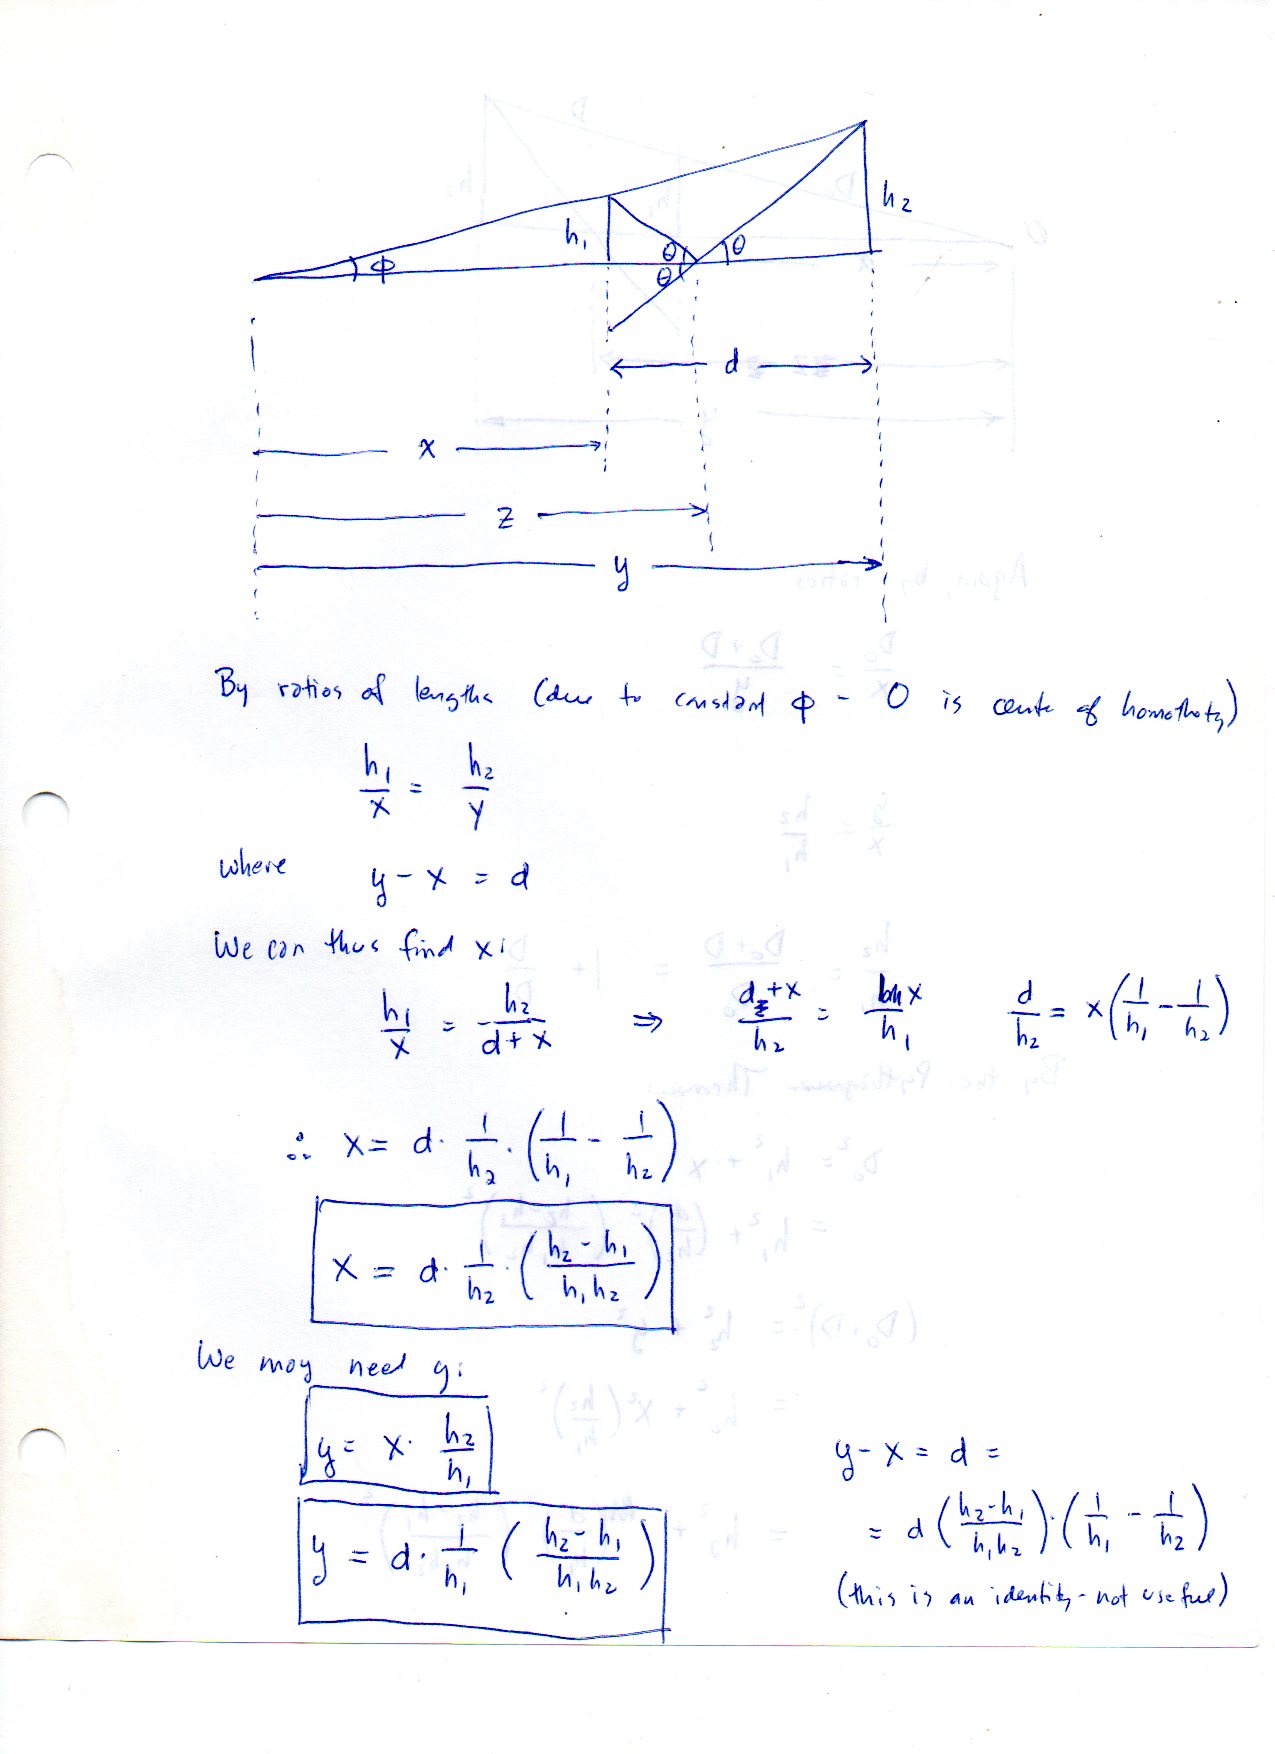 h₁
h₂
ϕ
θ
θ
θ
d
x
z
y
By ratios of lengths (due to constant ϕ - O is center of homothety)
h₁/x = h₂/y
where y - x = d
We can thus find x:
h₁/x = h₂/(d + x) ⇒ (d + x)/h₂ = x/h₁ d/h₂ = x(1/h₁ - 1/h₂)
∴ x = d · 1/h₂ · (1/h₁ - 1/h₂)
x = d · 1/h₂ · ((h₂ - h₁)/(h₁h₂))
We may need y:
y = x · h₂/h₁
y = d · 1/h₁ ((h₂ - h₁)/(h₁h₂))
y - x = d =
= d((h₂ - h₁)/(h₁h₂)) · (1/h₁ - 1/h₂)
(this is an identity - not useful)